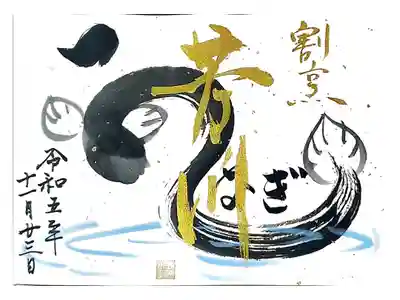 割烹
川
うなぎ
令和五年
十一月廿三日